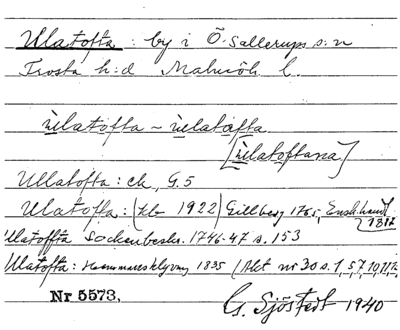 Ulatofta : by i Ö. Sallerups s:n
Frosta h:d Malmöh. l.
ùlatofta ~ ùelatofta
[ùlatoftana]
Ullatofta : ek, G.5
Ulatofta : (kb 1922) Gillberg 1765, Ensk. handl. 1812
Ulatoffta Sockenbeskr. 1746-47 s. 153
Ulatofta : Hemmansklyvn. 1835 (Akt nr 30 s. 1, 5, 7, 10, 11, 12
Nr 5573,
G. Sjöstedt 1940